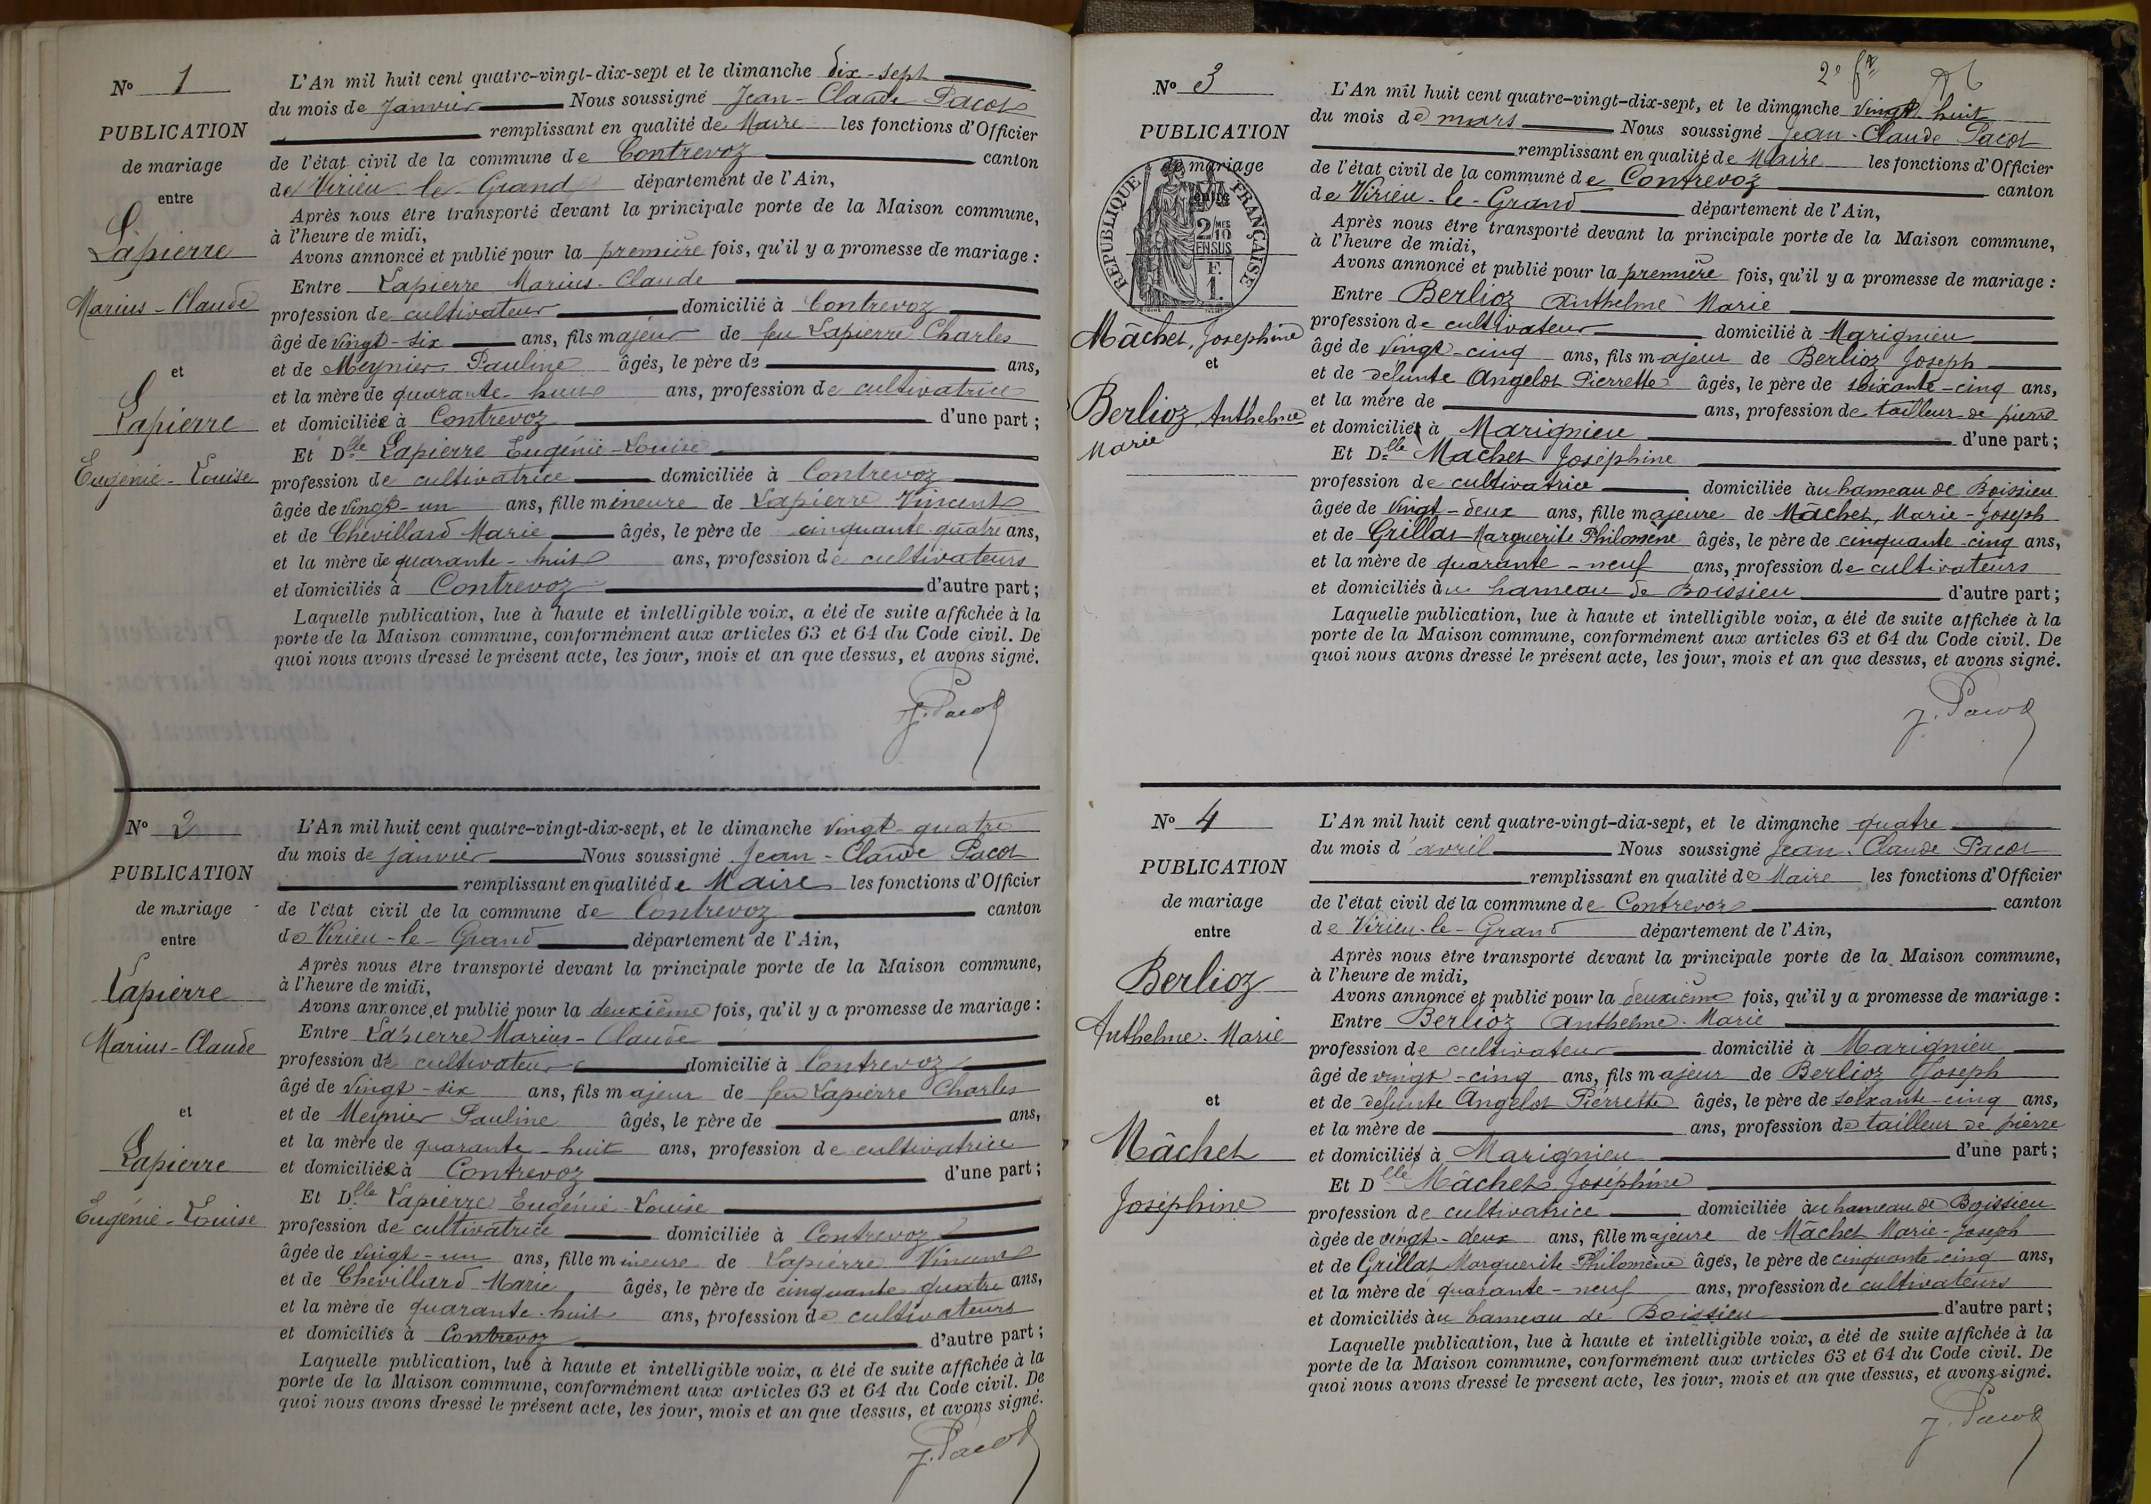 N° 1
PUBLICATION
de mariage
entre
Lapierre
Marius-Claude
et
Lapierre
Eugénie-Louise
L'An mil huit cent quatre-vingt-dix-sept et le dimanche dix-sept
du mois de Janvier Nous soussigné Jean-Claude Pacot
remplissant en qualité de Maire les fonctions d'Officier
de l'état civil de la commune de Contrevoz canton
de Virieu-le-Grand département de l'Ain,
Après nous être transporté devant la principale porte de la Maison commune,
à l'heure de midi,
Avons annoncé et publié pour la première fois, qu'il y a promesse de mariage :
Entre Lapierre Marius-Claude
profession de cultivateur domicilié à Contrevoz
âgé de vingt-six ans, fils majeur de feu Lapierre Charles
et de Meynier Pauline âgés, le père de ans,
et la mère de quarante-huit ans, profession de cultivatrice
et domiciliée à Contrevoz d'une part ;
Et Dlle Lapierre Eugénie-Louise
profession de cultivatrice domiciliée à Contrevoz
âgée de vingt-un ans, fille mineure de Lapierre Vincent
et de Chevillard Marie âgés, le père de cinquante-quatre ans,
et la mère de quarante-huit ans, profession de cultivateurs
et domiciliés à Contrevoz d'autre part ;
Laquelle publication, lue à haute et intelligible voix, a été de suite affichée à la
porte de la Maison commune, conformément aux articles 63 et 64 du Code civil. De
quoi nous avons dressé le présent acte, les jour, mois et an que dessus, et avons signé.
J. Pacot
N° 2
PUBLICATION
de mariage
entre
Lapierre
Marius-Claude
et
Lapierre
Eugénie-Louise
L'An mil huit cent quatre-vingt-dix-sept, et le dimanche vingt-quatre
du mois de janvier Nous soussigné Jean-Claude Pacot
remplissant en qualité de Maire les fonctions d'Officier
de l'état civil de la commune de Contrevoz canton
de Virieu-le-Grand département de l'Ain,
Après nous être transporté devant la principale porte de la Maison commune,
à l'heure de midi,
Avons annoncé et publié pour la deuxième fois, qu'il y a promesse de mariage :
Entre Lapierre Marius-Claude
profession de cultivateur domicilié à Contrevoz
âgé de vingt-six ans, fils majeur de feu Lapierre Charles
et de Meynier Pauline âgés, le père de ans,
et la mère de quarante-huit ans, profession de cultivatrice
et domiciliée à Contrevoz d'une part ;
Et Dlle Lapierre Eugénie-Louise
profession de cultivatrice domiciliée à Contrevoz
âgée de vingt-un ans, fille mineure de Lapierre Vincent
et de Chevillard Marie âgés, le père de cinquante-quatre ans,
et la mère de quarante-huit ans, profession de cultivateurs
et domiciliés à Contrevoz d'autre part ;
Laquelle publication, lue à haute et intelligible voix, a été de suite affichée à la
porte de la Maison commune, conformément aux articles 63 et 64 du Code civil. De
quoi nous avons dressé le présent acte, les jour, mois et an que dessus, et avons signé.
J. Pacot
N° 3
PUBLICATION
de mariage
entre
RÉPUBLIQUE FRANÇAISE
2/10
EN SUS
F.
1.
Mâchet, Joséphine
et
Berlioz Anthelme
Marie
L'An mil huit cent quatre-vingt-dix-sept, et le dimanche vingt-huit
du mois de mars Nous soussigné Jean-Claude Pacot
remplissant en qualité de Maire les fonctions d'Officier
de l'état civil de la commune de Contrevoz canton
de Virieu-le-Grand département de l'Ain,
Après nous être transporté devant la principale porte de la Maison commune,
à l'heure de midi,
Avons annoncé et publié pour la première fois, qu'il y a promesse de mariage :
Entre Berlioz Anthelme Marie
profession de cultivateur domicilié à Marignieu
âgé de vingt-cinq ans, fils majeur de Berlioz Joseph
et de défunte Angelot Pierrette âgés, le père de soixante-cinq ans,
et la mère de ans, profession de tailleur de pierre
et domicilié à Marignieu d'une part ;
Et Dlle Mâchet Joséphine
profession de cultivatrice domiciliée au hameau de Boissieu
âgée de vingt-deux ans, fille majeure de Mâchet, Marie-Joseph
et de Grillat Marguerite Philomène âgés, le père de cinquante-cinq ans,
et la mère de quarante-neuf ans, profession de cultivateurs
et domiciliés au hameau de Boissieu d'autre part ;
Laquelle publication, lue à haute et intelligible voix, a été de suite affichée à la
porte de la Maison commune, conformément aux articles 63 et 64 du Code civil. De
quoi nous avons dressé le présent acte, les jour, mois et an que dessus, et avons signé.
J. Pacot
N° 4
PUBLICATION
de mariage
entre
Berlioz
Anthelme-Marie
et
Mâchet
Joséphine
L'An mil huit cent quatre-vingt-dia-sept, et le dimanche quatre
du mois d'avril Nous soussigné Jean-Claude Pacot
remplissant en qualité de Maire les fonctions d'Officier
de l'état civil de la commune de Contrevoz canton
de Virieu-le-Grand département de l'Ain,
Après nous être transporté devant la principale porte de la Maison commune,
à l'heure de midi,
Avons annoncé et publié pour la deuxième fois, qu'il y a promesse de mariage :
Entre Berlioz Anthelme-Marie
profession de cultivateur domicilié à Marignieu
âgé de vingt-cinq ans, fils majeur de Berlioz Joseph
et de défunte Angelot Pierrette âgés, le père de soixante-cinq ans,
et la mère de ans, profession de tailleur de pierre
et domicilié à Marignieu d'une part ;
Et Dlle Mâchet Joséphine
profession de cultivatrice domiciliée au hameau de Boissieu
âgée de vingt-deux ans, fille majeure de Mâchet Marie-Joseph
et de Grillat Marguerite Philomène âgés, le père de cinquante-cinq ans,
et la mère de quarante-neuf ans, profession de cultivateurs
et domiciliés au hameau de Boissieu d'autre part ;
Laquelle publication, lue à haute et intelligible voix, a été de suite affichée à la
porte de la Maison commune, conformément aux articles 63 et 64 du Code civil. De
quoi nous avons dressé le présent acte, les jour, mois et an que dessus, et avons signé.
J. Pacot